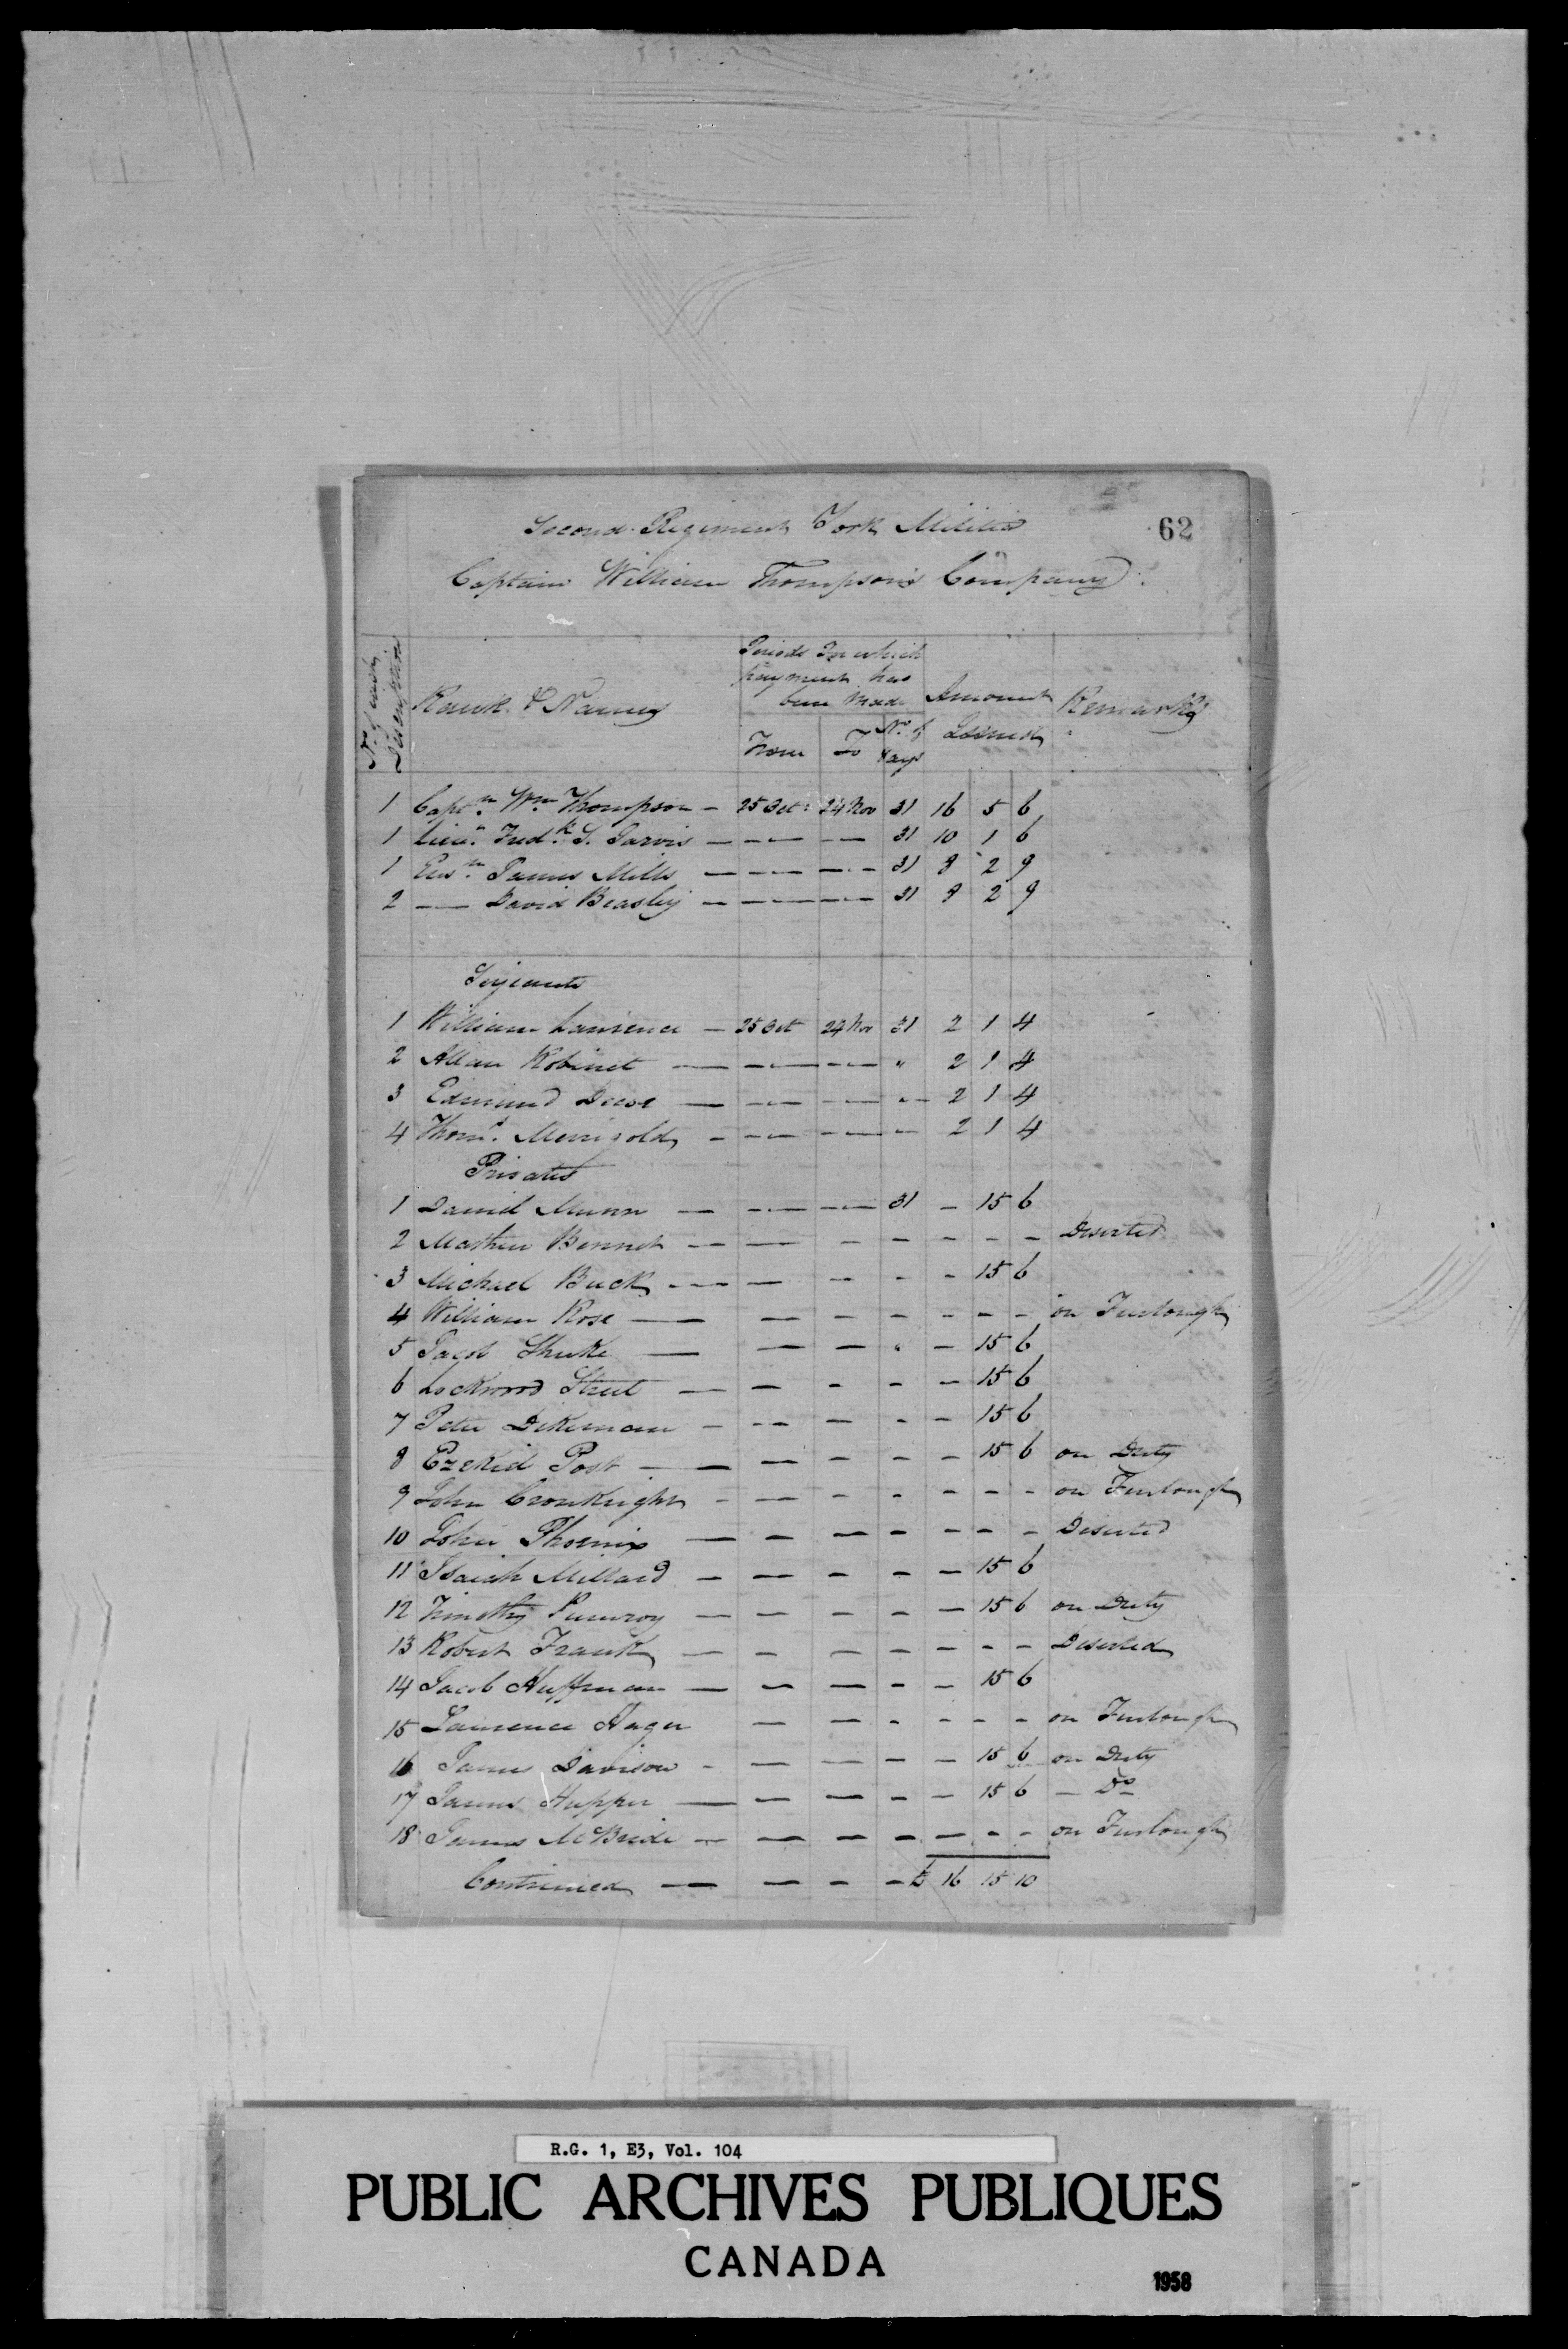 62
Second Regiment York Militia
Captain William Thompson's Company
No. of each Description
Rank & Names
Periods for which payment has been made
From
To
No. of days
Amount
Remarks
1 Captn. Wm Thompson - 25 Oct: 24 Nov 31 16 5 6
1 Lieut. Fredk. S. Jarvis — — — 31 10 1 6
1 Ensn. James Mills — — — 31 8 2 9
2 — David Beasley — — — 31 8 2 9
Serjeants
1 William Lawrence — 25 Oct 24 Nov 31 2 1 4
2 Allan Robinet — — — " 2 1 4
3 Edmund Deese — — — " 2 1 4
4 Thoms. Merrigold — — — — 2 1 4
Privates
1 Daniel Munn — — — 31 - 15 6
2 Mathew Bennet — — — — — — — Deserted
3 Michael Buck — — — — - 15 6
4 William Rose — — — — — — — on Furlough
5 Jacob Shuke — — — " - 15 6
6 Lockwood Street — — — — - 15 6
7 Peter Dikeman — — — — - 15 6
8 Ezekiel Post — — — — - 15 6 on Duty
9 John Cronkright — — — — — — — on Furlough
10 John Phoenix — — — — — — — Deserted
11 Isaiah Millard — — — — - 15 6
12 Timothy Pumroy — — — — - 15 6 on Duty
13 Robert Frank — — — — — — — Deserted
14 Jacob Huffman — — — — - 15 6
15 Lawrence Hager — — — — — — on Furlough
16 James Davison — — — — - 15 6 on Duty
17 James Hupper — — — — - 15 6 — Do
18 James McBride — — — — — — — on Furlough
Continued — — — — £ 16 15 10
R.G. 1, E3, Vol. 104
PUBLIC ARCHIVES PUBLIQUES
CANADA
1958